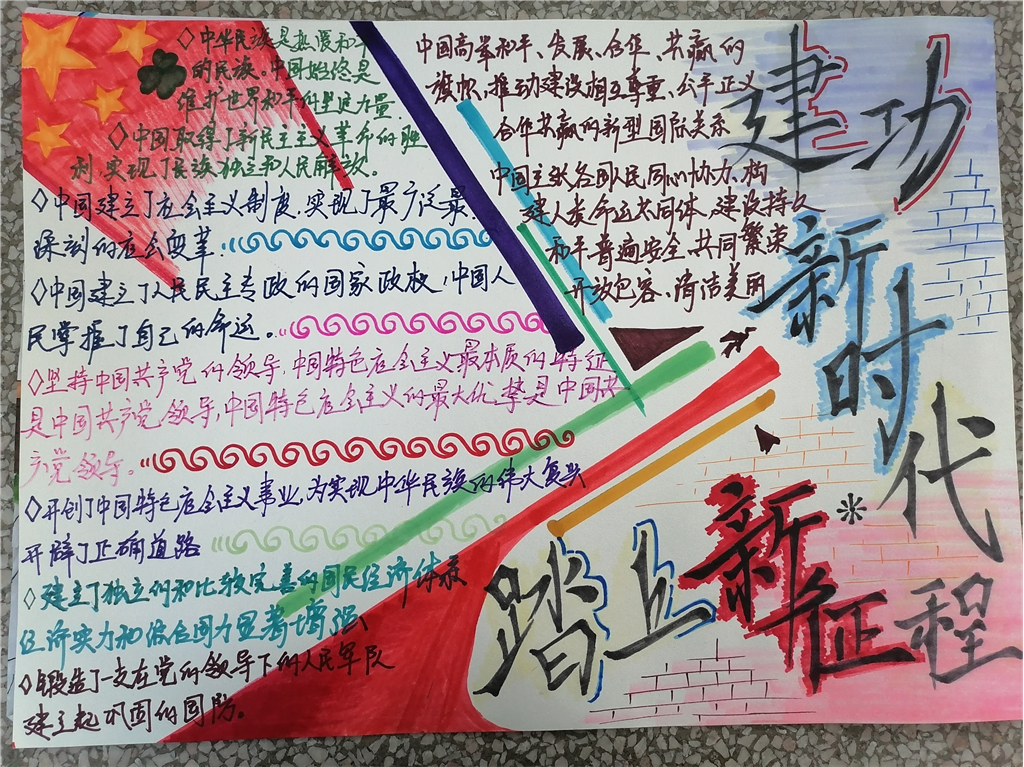 ◇中华民族是热爱和平
的民族。中国始终是
维护世界和平的坚定力量
◇中国取得了新民主主义革命的胜
利,实现了民族独立和人民解放。
◇中国建立了社会主义制度,实现了最广泛最
深刻的社会变革.
◇中国建立了人民民主专政的国家政权,中国人
民掌握了自己的命运。
◇坚持中国共产党的领导,中国特色社会主义最本质的特征
是中国共产党领导,中国特色社会主义的最大优势是中国共
产党领导。
◇开创了中国特色社会主义事业,为实现中华民族的伟大复兴
开辟了正确道路
◇建立了独立的和比较完善的国民经济体系
经济实力和综合国力显著增强
◇锻造了一支在党的领导下的人民军队
建立起巩固的国防。
中国高举和平、发展、合作、共赢的
旗帜,推动建设相互尊重、公平正义
合作共赢的新型国际关系
中国主张各国人民同心协力、构
建人类命运共同体,建设持久
和平普遍安全、共同繁荣
开放包容、清洁美丽
建功
新时代
踏上新征程